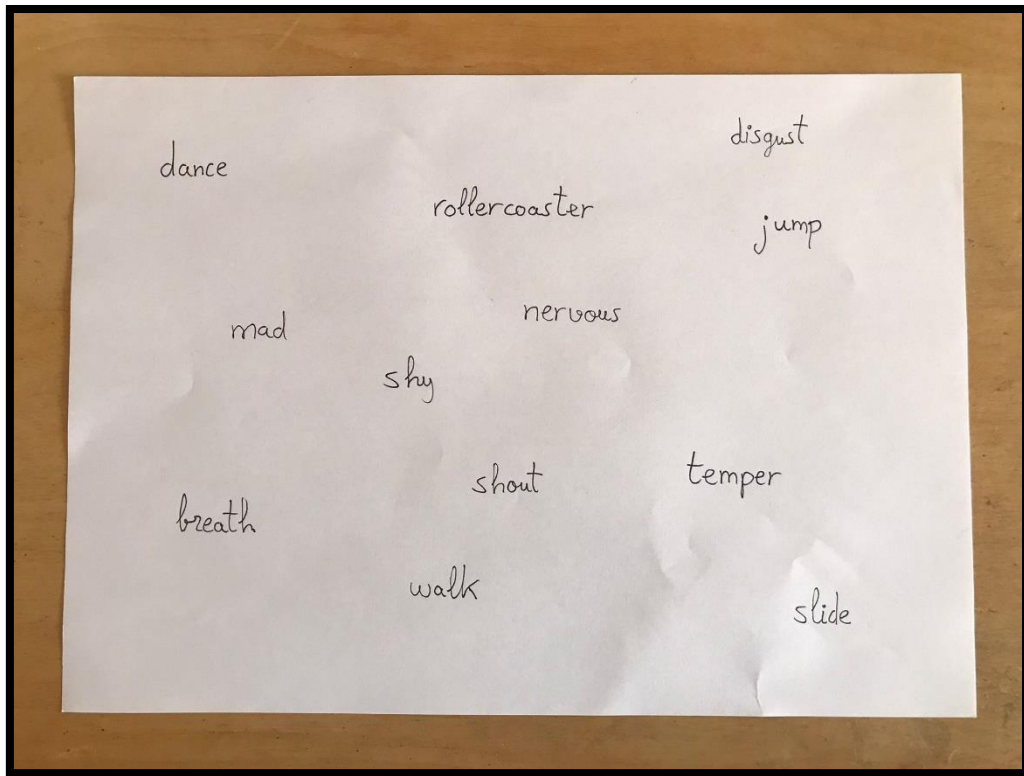 disgust
dance
rollercoaster
jump
nervous
mad
shy
temper
shout
breath
walk
slide